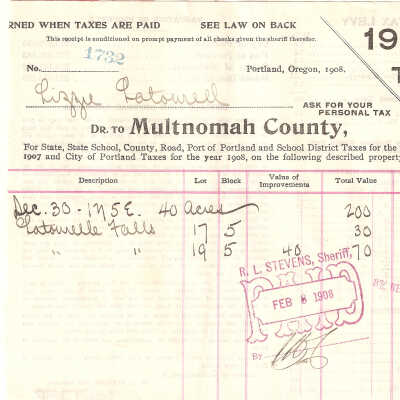 RNED WHEN TAXES ARE PAID SEE LAW ON BACK
This receipt is conditioned on prompt payment of all checks given the sheriff therefor.
19
No. 1732
Portland, Oregon, 1908.
T
Lizzie Latourell
ASK FOR YOUR
PERSONAL TAX
DR. TO Multnomah County,
For State, State School, County, Road, Port of Portland and School District Taxes for the
1907 and City of Portland Taxes for the year 1908, on the following described property
Description Lot Block Value of Improvements Total Value
Sec. 30-1N5E. 40 Acres 200
Latourelle Falls 17 5 30
" " 19 5 40 70
R. L. STEVENS, Sheriff,
FEB 1908
BY